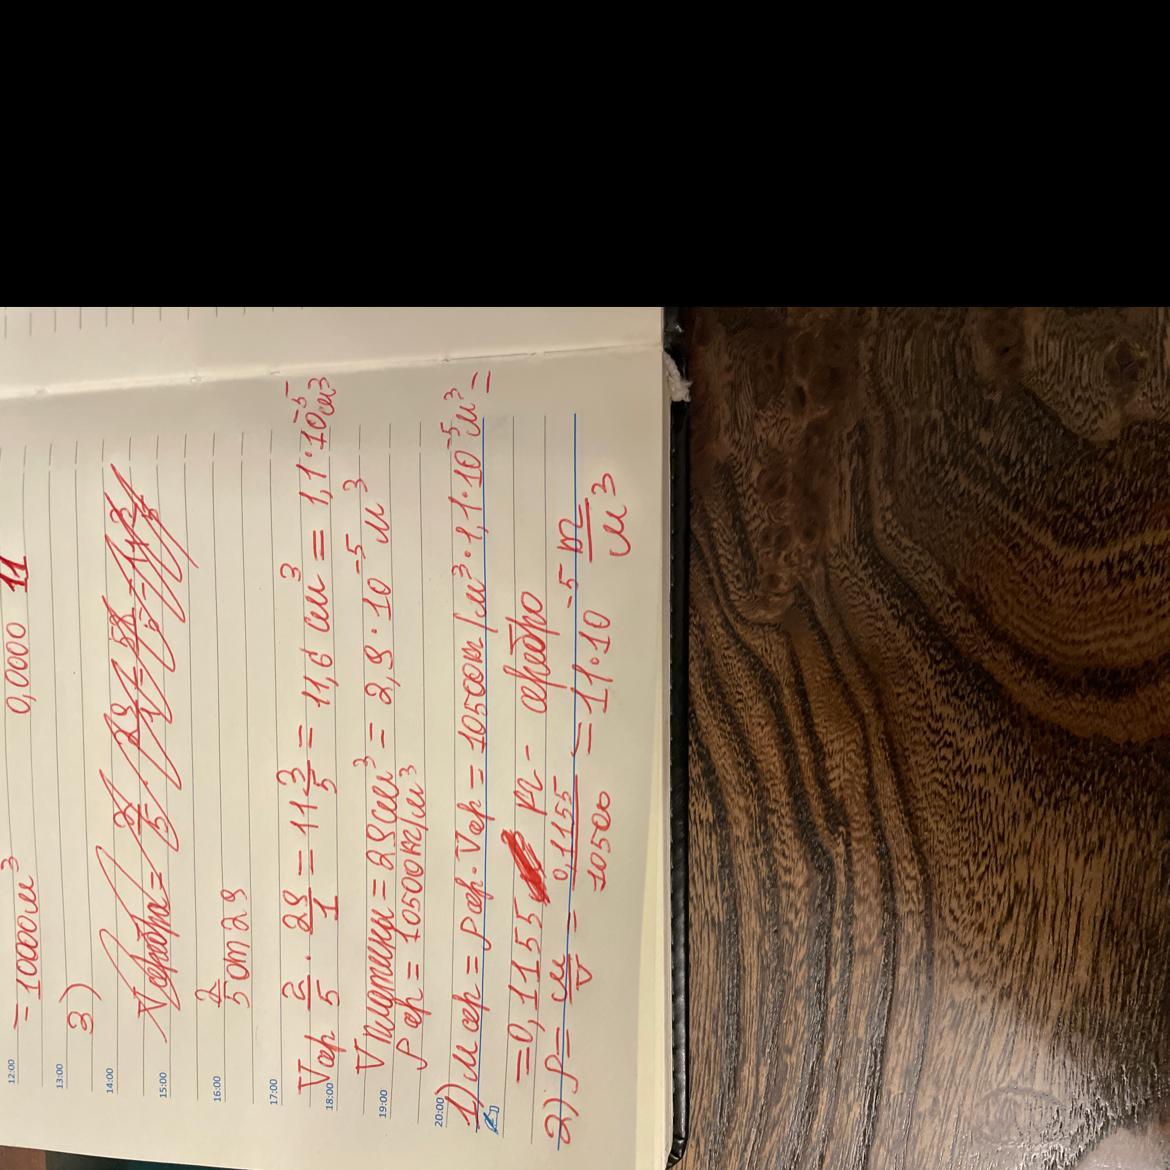 = 10000 м³ 0,0000 11
12:00
13:00
3)
14:00
15:00
16:00
2/5 от 29
17:00
Vсер 2/5 · 29/1 = 11 3/5 = 11,6 см³ = 1,1·10⁻⁵ см³
18:00
Vплатины = 29 см³ = 2,9·10⁻⁵ м³
19:00
ρ сер = 10500 кг/м³
20:00
1) м сер = ρ сер · Vсер = 10500 кг/м³ · 1,1·10⁻⁵ м³ =
= 0,1155 кг - серебро
2) ρ = м/V = 0,1155/10500 = 11·10⁻⁵ м³